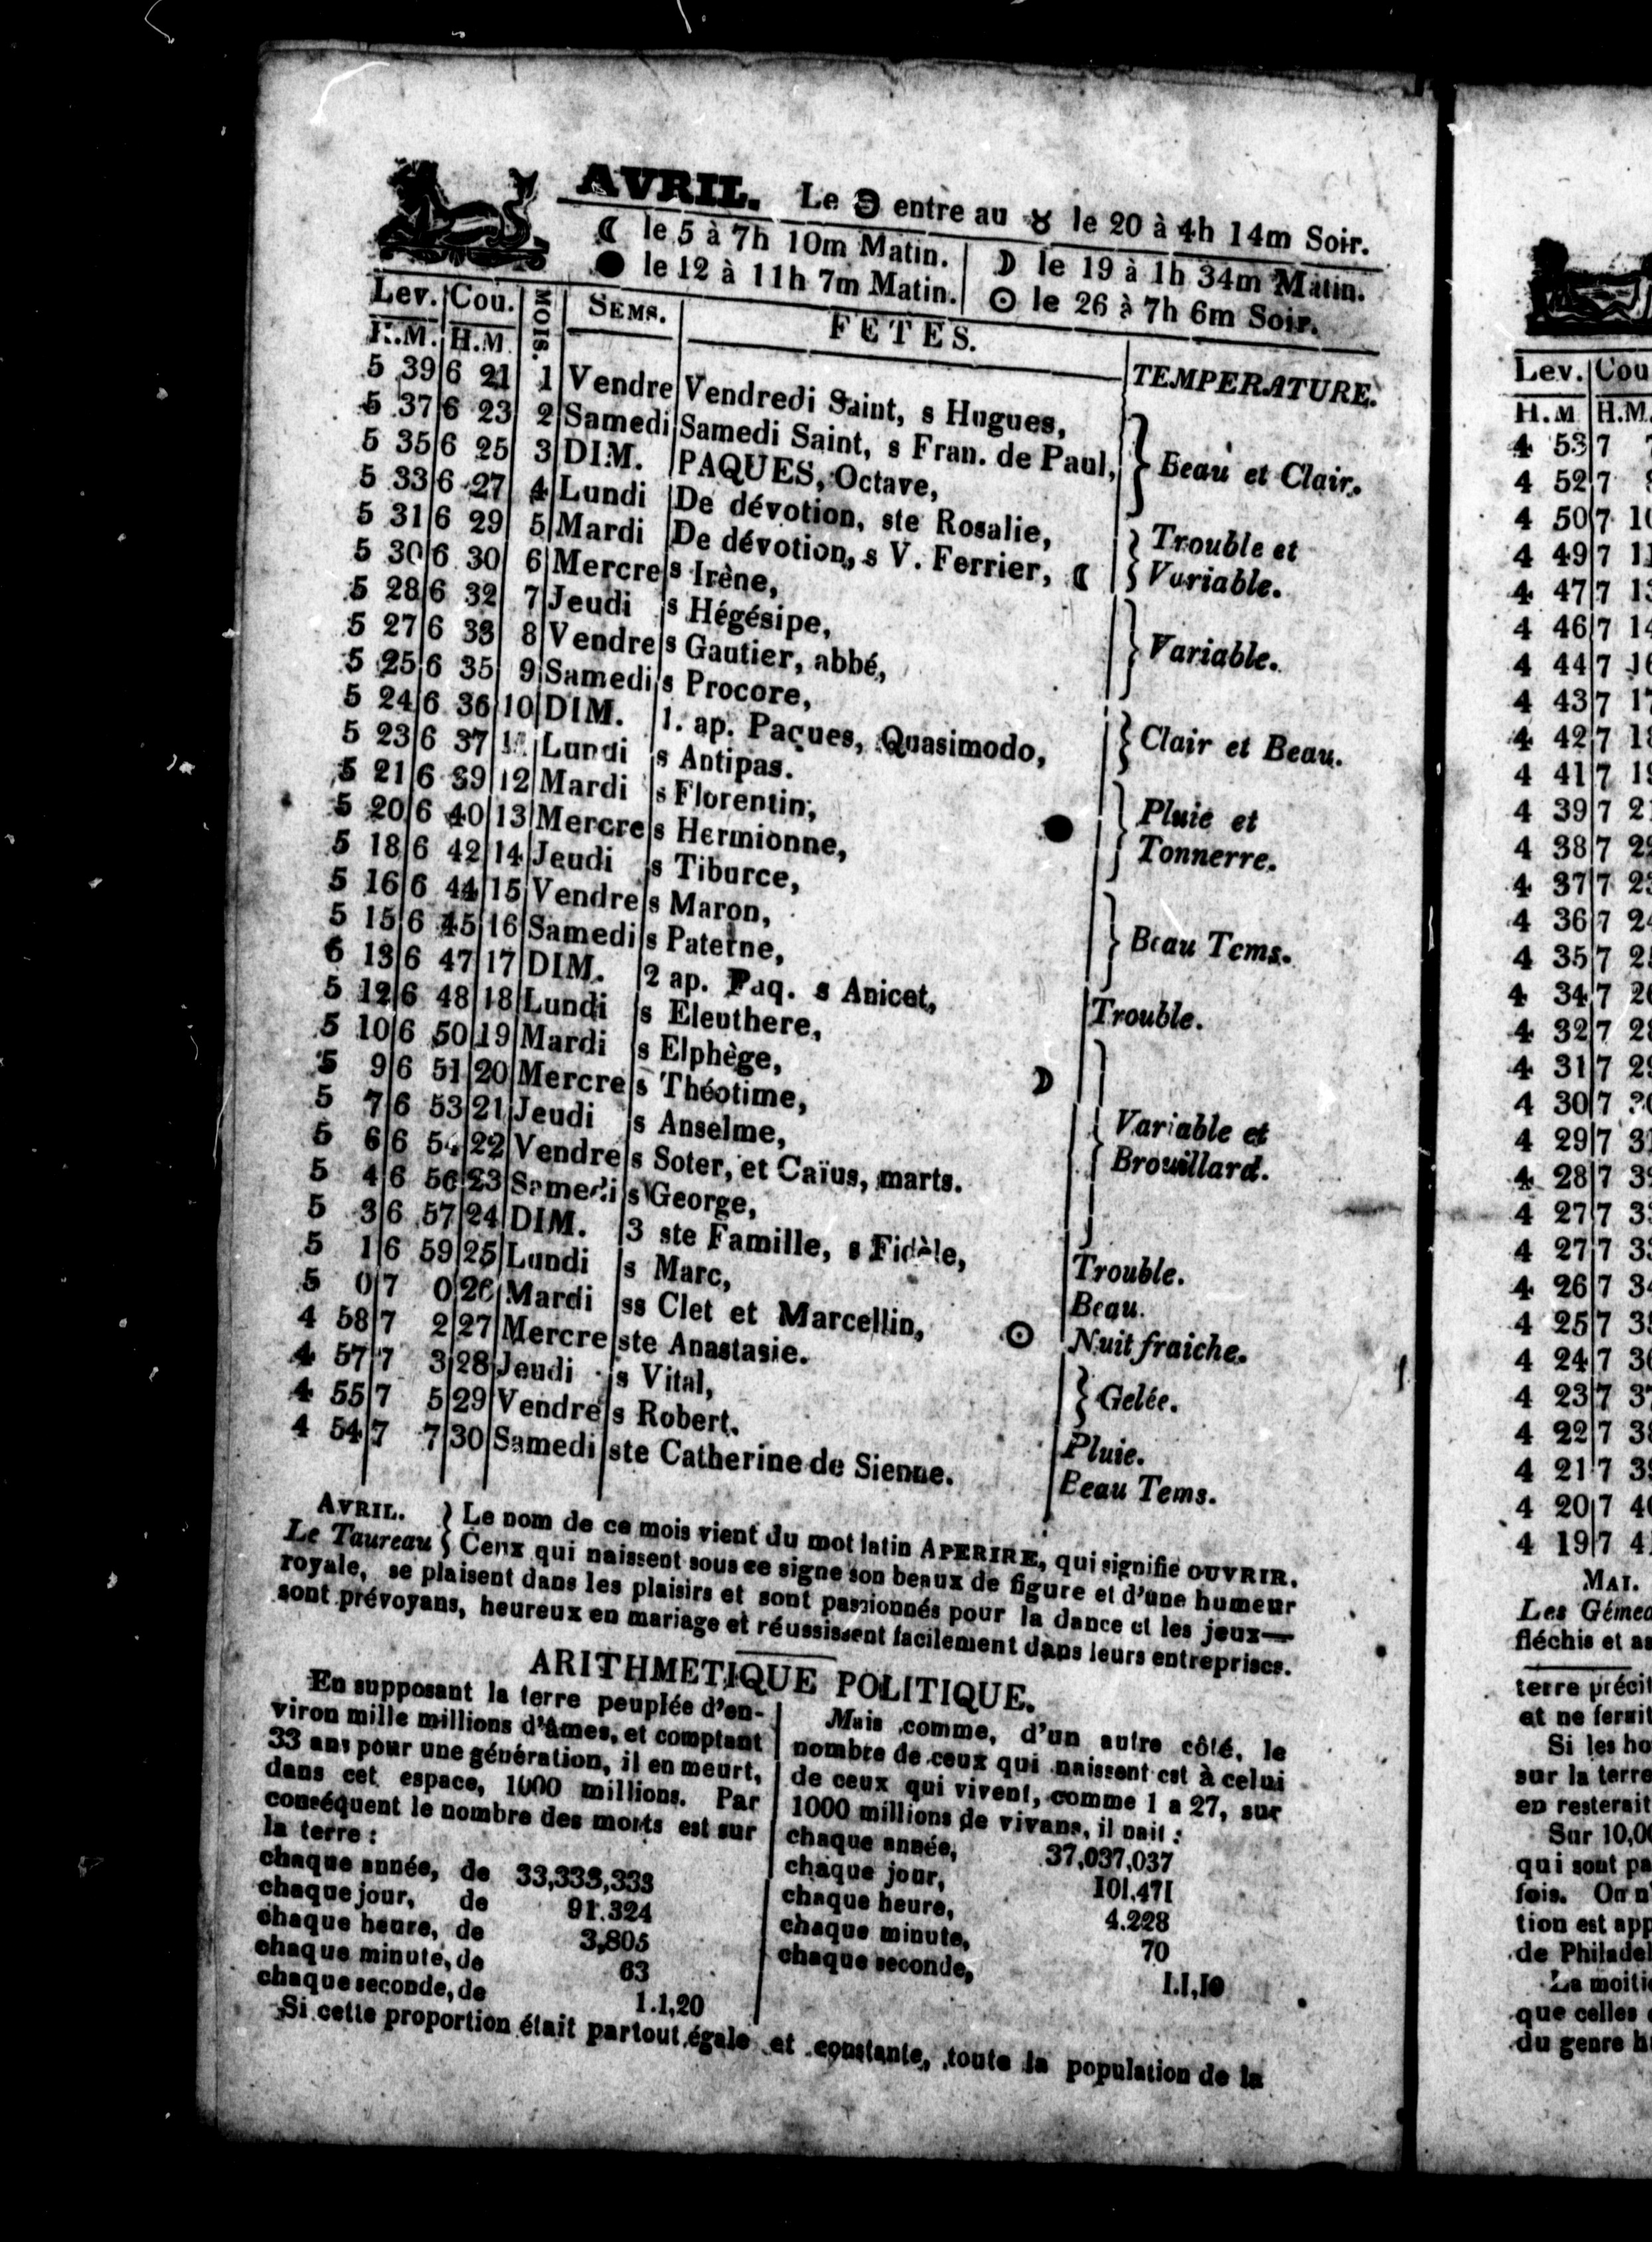 AVRIL. Le entre au ♉ le 20 à 4h 14m Soir.
☾ le 5 à 7h 10m Matin. ☽ le 19 à 1h 34m Matin.
● le 12 à 11h 7m Matin. ☉ le 26 à 7h 6m Soir.
Lev. Cou. MOIS. SEMS. FETES. TEMPERATURE.
H.M. H.M
5 39 6 21 1 Vendre Vendredi Saint, s Hugues,
5 37 6 23 2 Samedi Samedi Saint, s Fran. de Paul, Beau et Clair.
5 35 6 25 3 DIM. PAQUES, Octave,
5 33 6 27 4 Lundi De dévotion, ste Rosalie, Trouble et
5 31 6 29 5 Mardi De dévotion, s V. Ferrier, ☾ Variable.
5 30 6 30 6 Mercre s Irène,
5 28 6 32 7 Jeudi s Hégésipe, Variable.
5 27 6 33 8 Vendre s Gautier, abbé,
5 25 6 35 9 Samedi s Procore,
5 24 6 36 10 DIM. 1. ap. Paques, Quasimodo, Clair et Beau.
5 23 6 37 11 Lundi s Antipas.
5 21 6 39 12 Mardi s Florentin, ● Pluie et
5 20 6 40 13 Mercre s Hermionne, Tonnerre.
5 18 6 42 14 Jeudi s Tiburce,
5 16 6 44 15 Vendre s Maron, Beau Tems.
5 15 6 45 16 Samedi s Paterne,
5 13 6 47 17 DIM. 2 ap. Paq. s Anicet, Trouble.
5 12 6 48 18 Lundi s Eleuthere,
5 10 6 50 19 Mardi s Elphège, ☽
5 9 6 51 20 Mercre s Théotime, Variable et
5 7 6 53 21 Jeudi s Anselme, Brouillard.
5 6 6 54 22 Vendre s Soter, et Caïus, marts.
5 4 6 56 23 Samedi s George,
5 3 6 57 24 DIM. 3 ste Famille, s Fidèle, Trouble.
5 1 6 59 25 Lundi s Marc, Beau.
5 0 7 0 26 Mardi ss Clet et Marcellin, ☉ Nuit fraiche.
4 58 7 2 27 Mercre ste Anastasie.
4 57 7 3 28 Jeudi s Vital, Gelée.
4 55 7 5 29 Vendre s Robert. Pluie.
4 54 7 7 30 Samedi ste Catherine de Sienne. Beau Tems.
AVRIL. } Le nom de ce mois vient du mot latin APERIRE, qui signifie OUVRIR.
Le Taureau } Ceux qui naissent sous ce signe son beaux de figure et d'une humeur
royale, se plaisent dans les plaisirs et sont passionnés pour la dance et les jeux—
sont prévoyans, heureux en mariage et réussissent facilement dans leurs entreprises.
ARITHMETIQUE POLITIQUE.
En supposant la terre peuplée d'en-
viron mille millions d'âmes, et comptant
33 ans pour une génération, il en meurt,
dans cet espace, 1000 millions. Par
conséquent le nombre des morts est sur
la terre :
chaque année, de 33,333,333
chaque jour, de 91.324
chaque heure, de 3,805
chaque minute, de 63
chaque seconde, de 1.1,20
Mais comme, d'un autre côté, le
nombre de ceux qui naissent est à celui
de ceux qui vivent, comme 1 a 27, sur
1000 millions de vivans, il nait :
chaque année, 37,037,037
chaque jour, 101,471
chaque heure, 4.228
chaque minute, 70
chaque seconde, 1.1,10
Si cette proportion était partout égale et constante, toute la population de la
Lev. Cou
H.M H.M.
4 53 7
4 52 7
4 50 7
4 49 7
4 47 7
4 46 7
4 44 7
4 43 7
4 42 7
4 41 7
4 39 7
4 38 7
4 37 7
4 36 7
4 35 7
4 34 7
4 32 7
4 31 7
4 30 7
4 29 7
4 28 7
4 27 7
4 27 7
4 26 7
4 25 7
4 24 7
4 23 7
4 22 7
4 21 7
4 20 7
4 19 7
MAI.
Les Gémea
fléchis et as
terre précit
et ne ferait
Si les ho
sur la terre
en resterait
Sur 10,00
qui sont pa
fois. On n'
tion est app
de Philadel
La moitié
que celles
du genre h